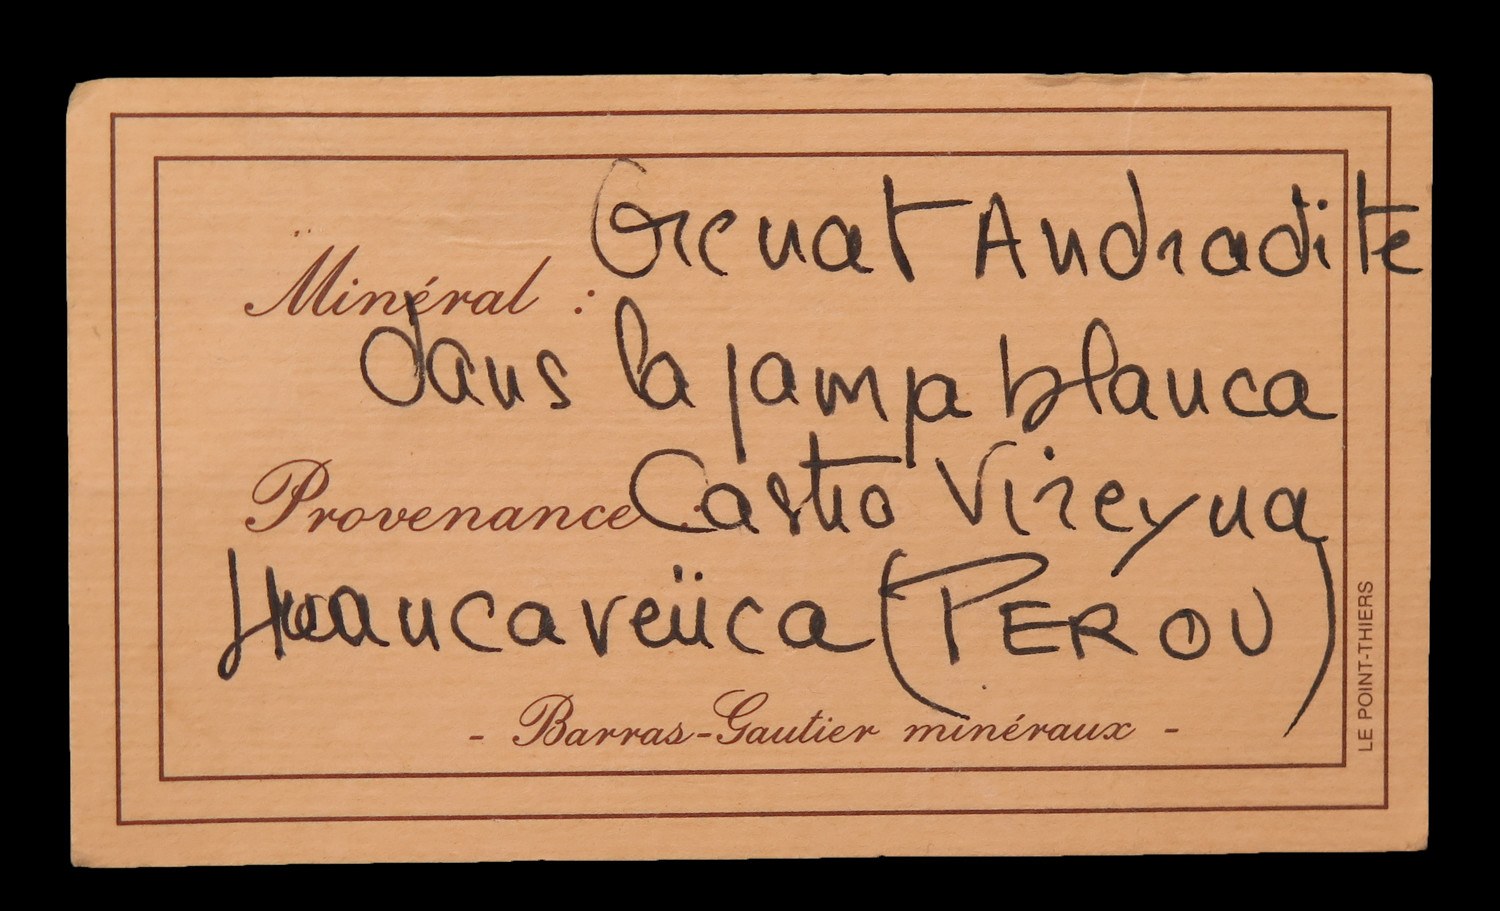 Grenat Andradite
Minéral :
dans la pampa blanca
Provenance : Castro Vireyna
Huancaveüca (PEROU)
- Barras-Gautier minéraux -
LE POINT-THIERS